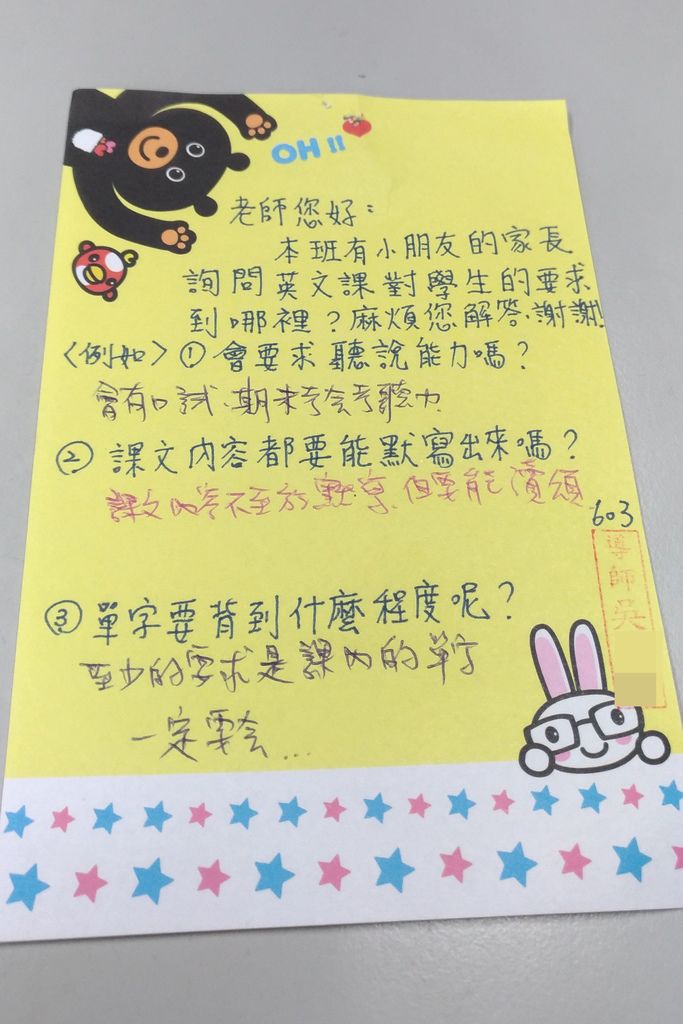 OH !!
老師您好：
本班有小朋友的家長
詢問英文課對學生的要求
到哪裡？麻煩您解答，謝謝！
〈例如〉① 會要求聽說能力嗎？
會有口試、期末考会考聽力
② 課文內容都要能默寫出來嗎？
課文內容不至於默寫，但要能讀順
603
導師吳
③ 單字要背到什麼程度呢？
至少的要求是課內的單字
一定要会...